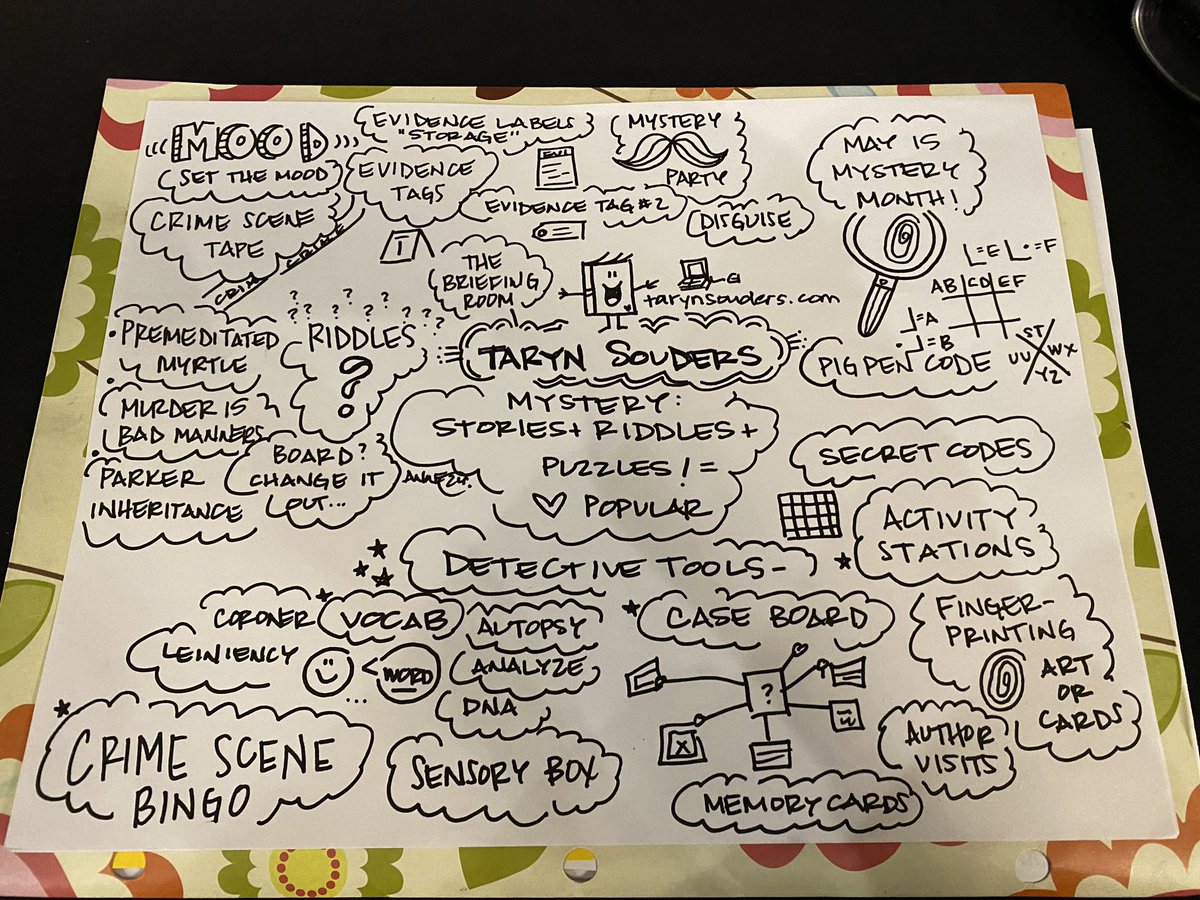 MOOD
SET THE MOOD
EVIDENCE LABELS
"STORAGE"
EVIDENCE
TAGS
MYSTERY
PARTY
MAY IS
MYSTERY
MONTH!
CRIME SCENE
TAPE
CRIME CRIME
1
EVIDENCE TAG #2
DISGUISE
THE
BRIEFING
ROOM
tarynsouders.com
TARYN SOUDERS
=E =F
AB CD EF
=A
=B
ST
UV WX
YZ
PIG PEN CODE
? ? ? ? ? ? ? ?
RIDDLES
?
PREMEDITATED
MYRTLE
MURDER IS
BAD MANNERS
PARKER
INHERITANCE
BOARD?
CHANGE IT
OUT...
MYSTERY:
STORIES + RIDDLES +
PUZZLES! =
POPULAR
SECRET CODES
ACTIVITY
STATIONS
DETECTIVE TOOLS-
CORONER
VOCAB
AUTOPSY
LEINIENCY
WORD
...
ANALYZE
DNA
CASE BOARD
?
X
FINGER-
PRINTING
ART
OR
CARDS
AUTHOR
VISITS
CRIME SCENE
BINGO
SENSORY BOX
MEMORY CARDS